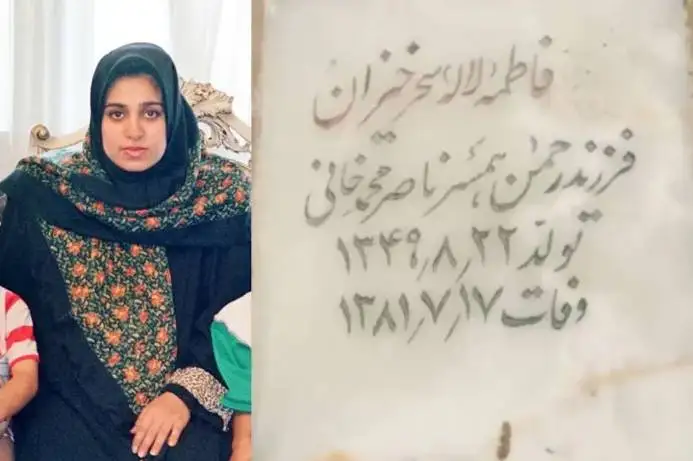 فاطمهٔ لالهٔ سحرخیزان
فرزند رحمن همسر ناصر محمدخانی
تولد ۱۳۴۹٫۸٫۲۲
وفات ۱۳۸۱٫۷٫۱۷